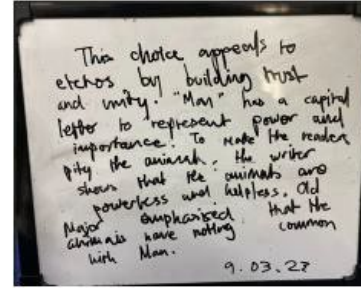 This choice appeals to
etehos by building trust
and unity. "Man" has a capital
letter to represent power and
importance. To make the readers
pity the animals, the writer
shows that the animals are
powerless and helpless. Old
Major emphasised that the
animals have noting common
with Man.
9.03.23